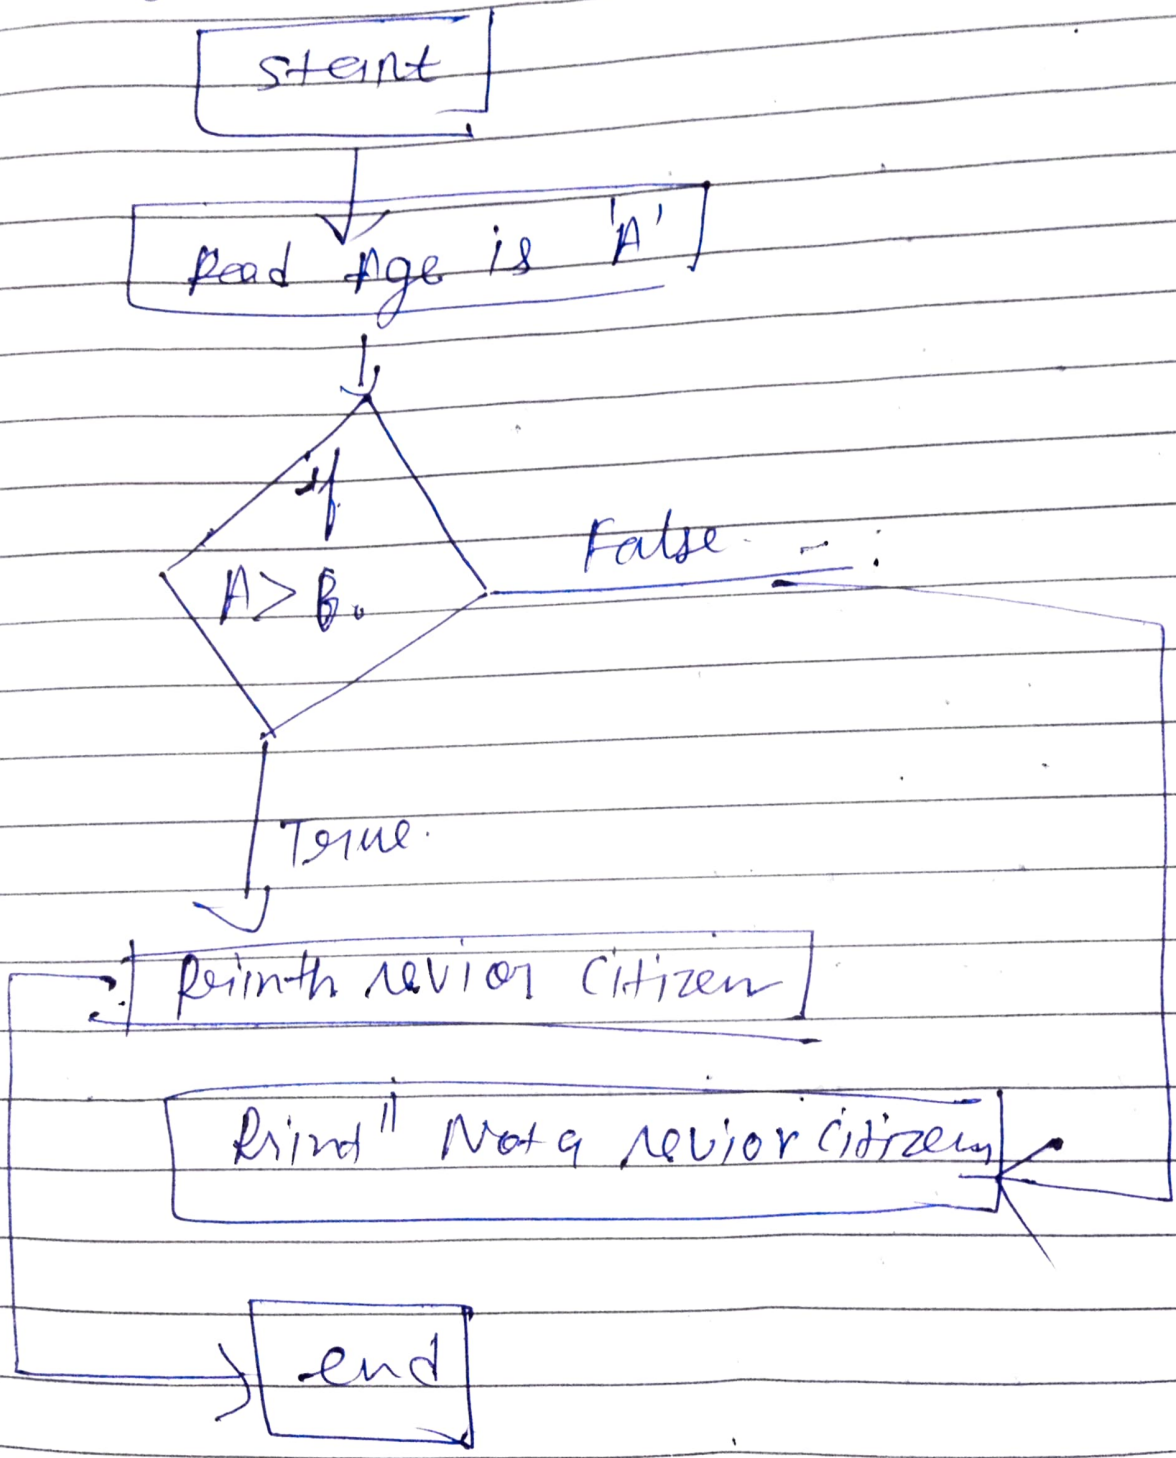 start
Read Age is 'A'
if
A > B.
False
True.
Printh sevior Citizen
Prind" Not a sevior Citizen
end